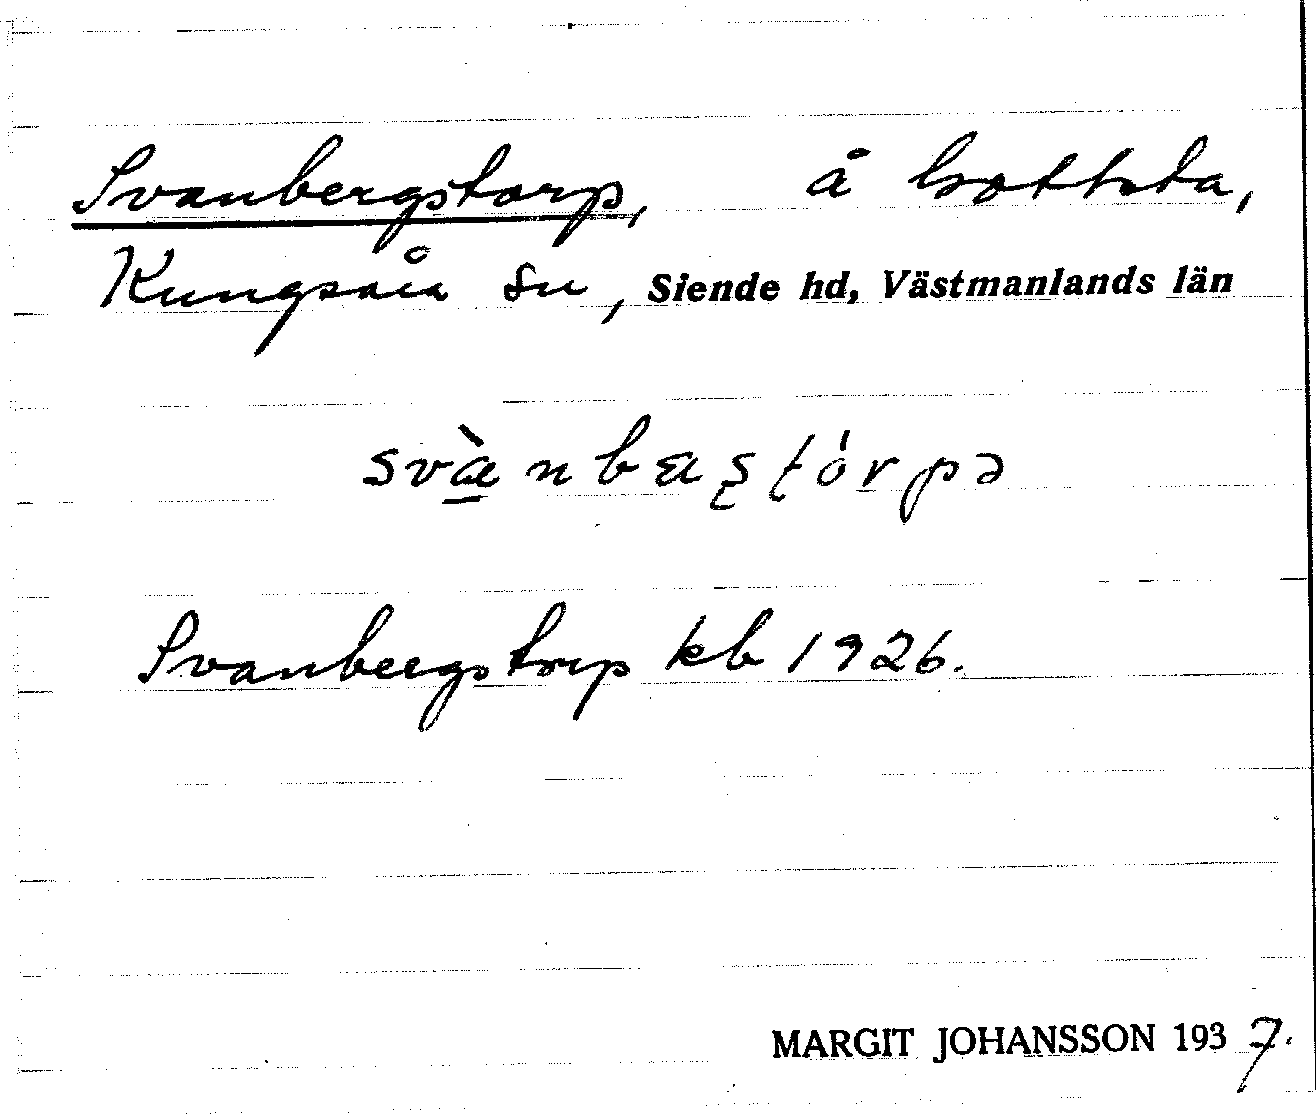 Svanbergstorp, å Lottsta,
Kungsåra sn, Siende hd, Västmanlands län
Svanbergstorp kb 1926.
MARGIT JOHANSSON 1937.